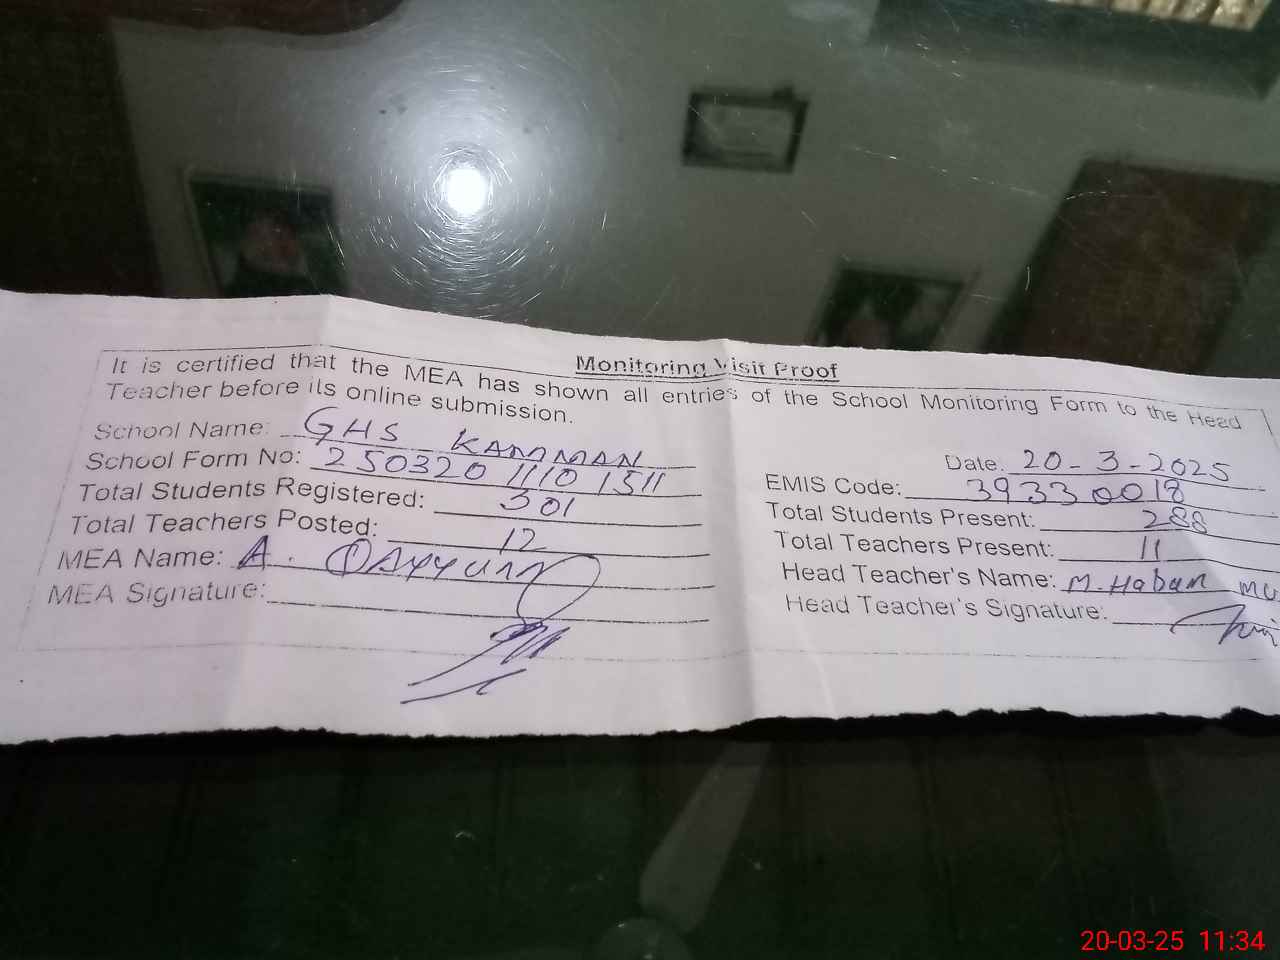 Monitoring Visit Proof
It is certified that the MEA has shown all entries of the School Monitoring Form to the Head
Teacher before its online submission.
School Name: GHS KAMMAN
Date: 20-3-2025
School Form No: 250320 1110 1511
EMIS Code: 39330018
Total Students Registered: 301
Total Students Present: 288
Total Teachers Posted: 12
Total Teachers Present: 11
MEA Name: A. QAYYUM
Head Teacher's Name: M.
MEA Signature:
Head Teacher's Signature:
20-03-25 11:34